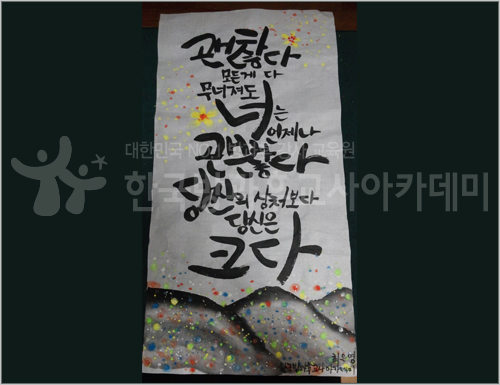 괜찮다
모든게 다
무너져도
너는
언제나
괜찮다
당신의 상처보다
당신은
크다
대한민국
교육원
교사아카데미